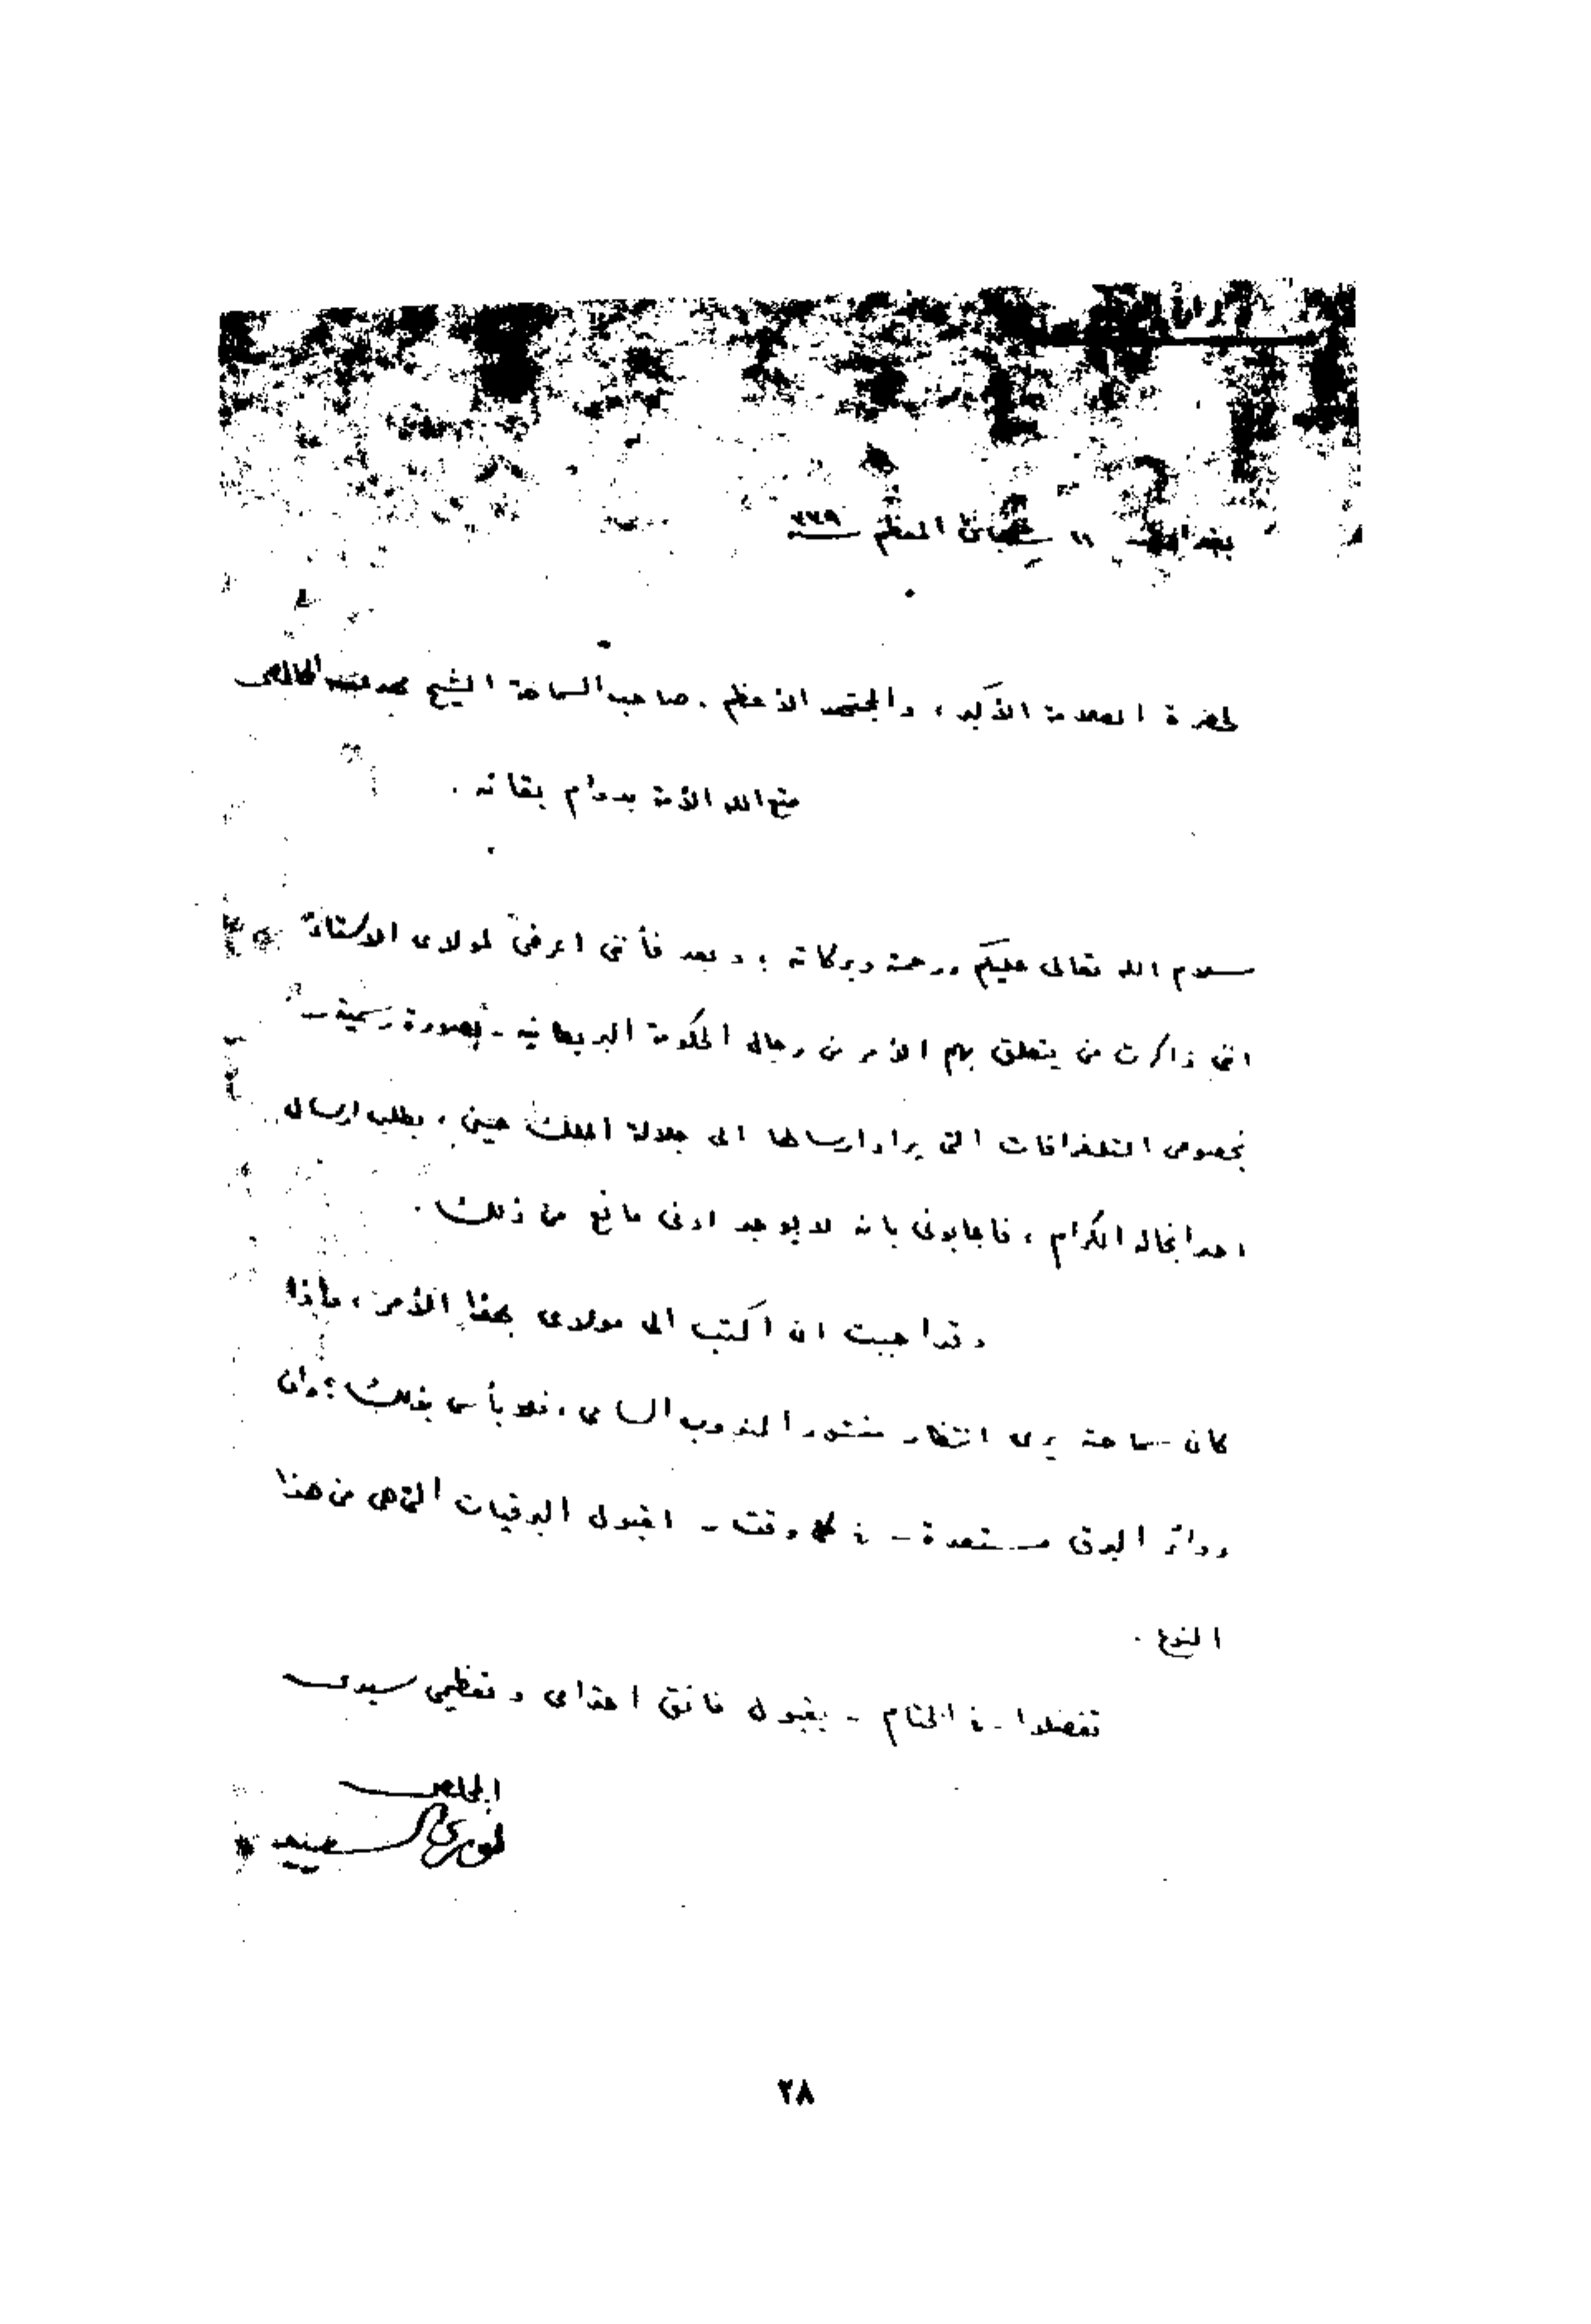 بغداد ١١ شعبان المعظم ٣٣٩
لحضرة العلامة الأكبر، والمجتهد الأعظم، صاحب السماحة الشيخ محمد مهدي الخالصي
متع الله الأمة بدوام بقائه.
سلام الله تعالى عليكم ورحمة وبركاته؛ وبعد فأنني اعرض لمولاى الاستاذ
انني ذاكرت من يتعلق بهم الأمر من رجال الحكومة البريطانيه - بصورة رسمية -
بخصوص التلغرافات التي يراد ارسالها الى جلالة الملك حسين، بطلب ارسال
احد انجاله الكرام، فاجابوني بانه لا يوجد ادنى مانع من ذلك.
وقد احببت ان اكتب الى مولاى بهذا الأمر، فإذا
كان سماحته يرى انتظار منشور المندوب السامي، فلا بأس بذلك؛ وان
دوائر البرق مستعدة - في كل وقت - لقبول البرقيات التي هي من هذا
النوع.
تفضلوا - في الختام - بقبول فائق احترامى وتعظيمي سيدى
المخلص
نوري السعيد
٢٨